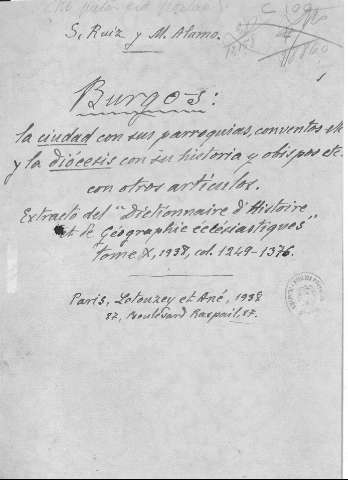 S. Ruiz y M. Alamo.
Burgos:
la ciudad con sus parroquias, conventos etc
y la diócesis con su historia y obispos etc.
con otros artículos.
Extracto del "Dictionnaire d'Histoire
et de Géographie ecclésiastiques"
tome X, 1938, col. 1249-1376.
Paris, Letouzey et Ané, 1938
87, Boulevard Raspail, 87.